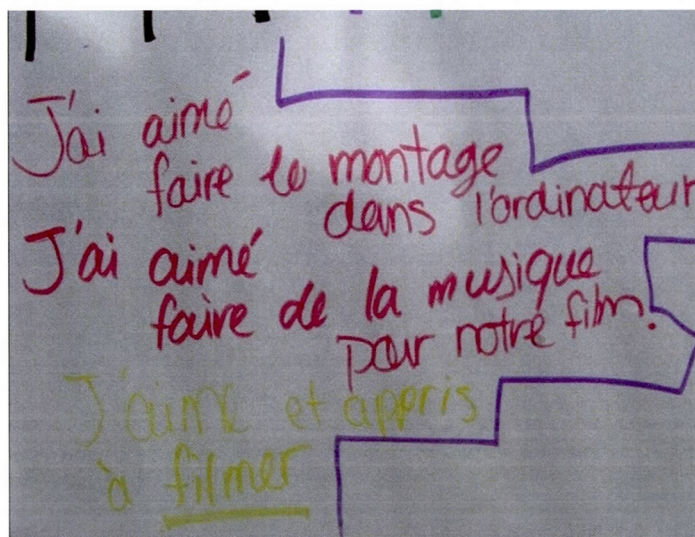 J'ai aimé
faire le montage
dans l'ordinateur
J'ai aimé
faire de la musique
pour notre film.
J'aime et appris
à filmer